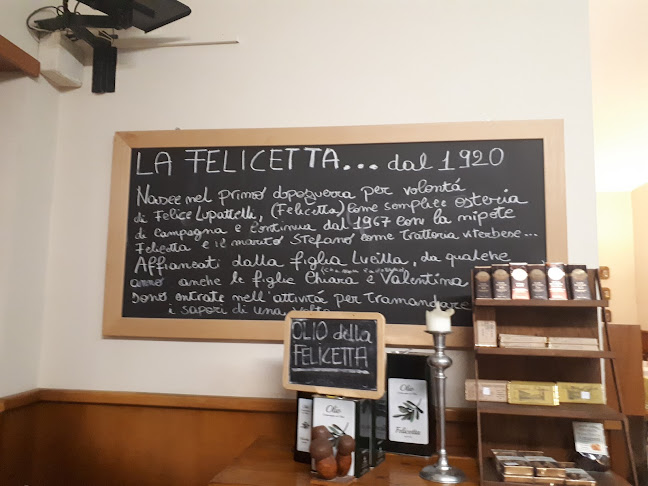 LA FELICETTA... dal 1920
Nasce nel primo dopoguerra per volontá
di Felice Lupattelli, (Felicetta) come semplice osteria
di campagna e continua dal 1967 con la nipote
Felicetta e il marito Stefano come Trattoria viterbese...
Affiancati dalla figlia Lucilla, da qualche
anno anche le figlie Chiara e Valentina
sono entrate nell'attivitá per Tramandare
i sapori di una volta
OLIO della
FELICETTA
Olio
Olio
Felicetta